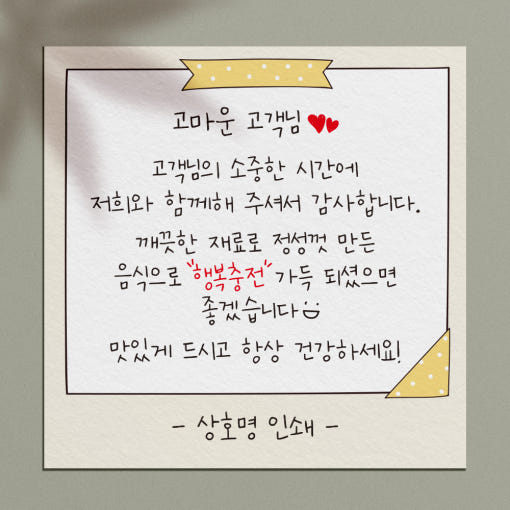 고마운 고객님
고객님의 소중한 시간에
저희와 함께해 주셔서 감사합니다.
깨끗한 재료로 정성껏 만든
음식으로 "행복충전" 가득 되셨으면
좋겠습니다
맛있게 드시고 항상 건강하세요!
- 상호명 인쇄 -